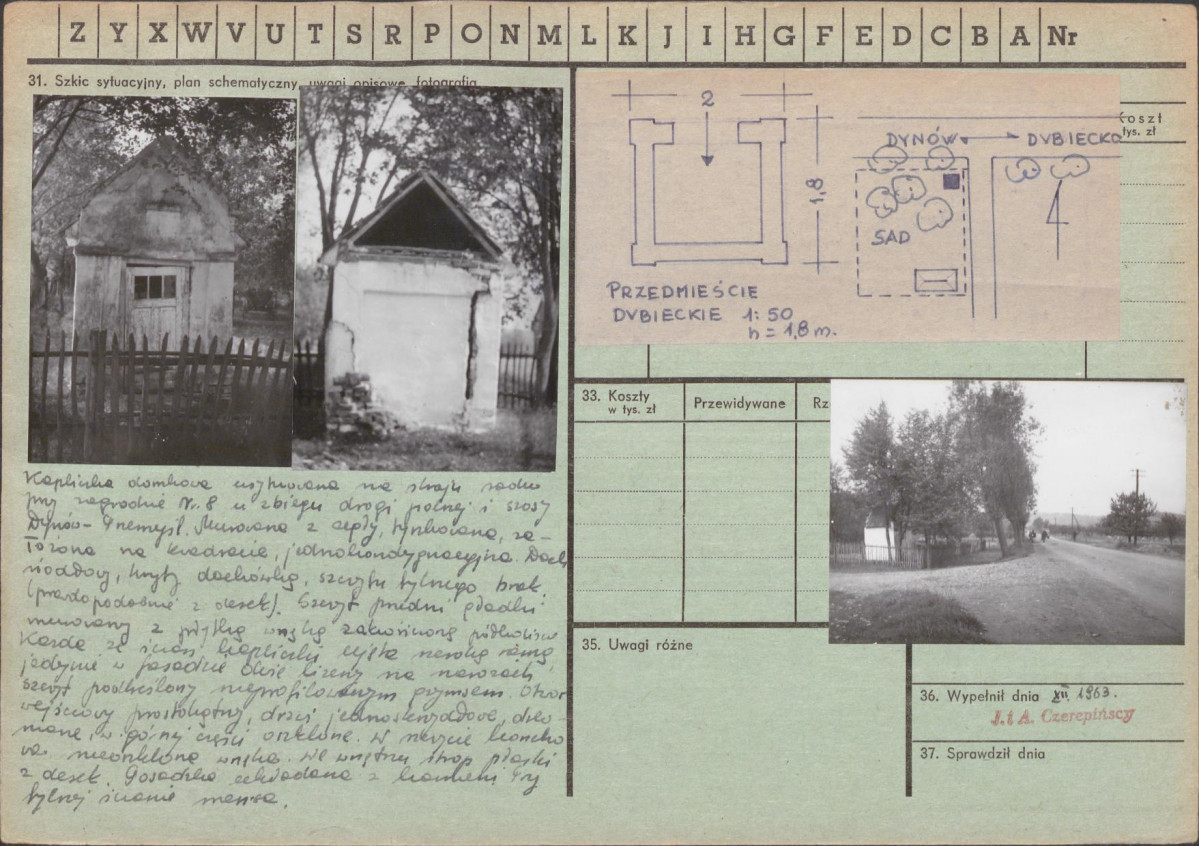 Z Y X W V U T S R P O N M L K J I H G F E D C B A Nr
31. Szkic sytuacyjny, plan schematyczny, uwagi opisowe, fotografia
Kapliczka domkowa usytuowana na skraju sadu
przy zagrodzie Nr. 8 u zbiegu drogi polnej i szosy
Dynów - Przemyśl. Murowana z cegły, tynkowana, za-
łożona na kwadracie, jednokondygnacyjna. Dach
siodłowy, kryty dachówką, szczytu tylnego brak
(prawdopodobnie z desek). Szczyt przedni gładki
murowany z płytką wnęką zakończoną półkoliście
Każda ze ścian kapliczki ujęta szeroką ramą,
jedynie w fasadzie dwie lizeny na narożach,
szczyt podkreślony nieprofilowanym gzymsem. Otwór
wejściowy prostokątny, drzwi jednoskrzydłowe, drew-
niane, w górnej części oszklone. W szczycie
nieoszklona wnęka. We wnętrzu strop płaski
z desek. Posadzka układana z kamieni. Przy
tylnej ścianie mensa.
2
1,8
PRZEDMIEŚCIE
DUBIECKIE 1:50
h = 1,8 m.
DYNÓW DUBIECKO
SAD
Koszt
tys. zł
33. Koszty
w tys. zł
Przewidywane
Rz
35. Uwagi różne
36. Wypełnił dnia XII 1963.
J. i A. Czerepińscy
37. Sprawdził dnia